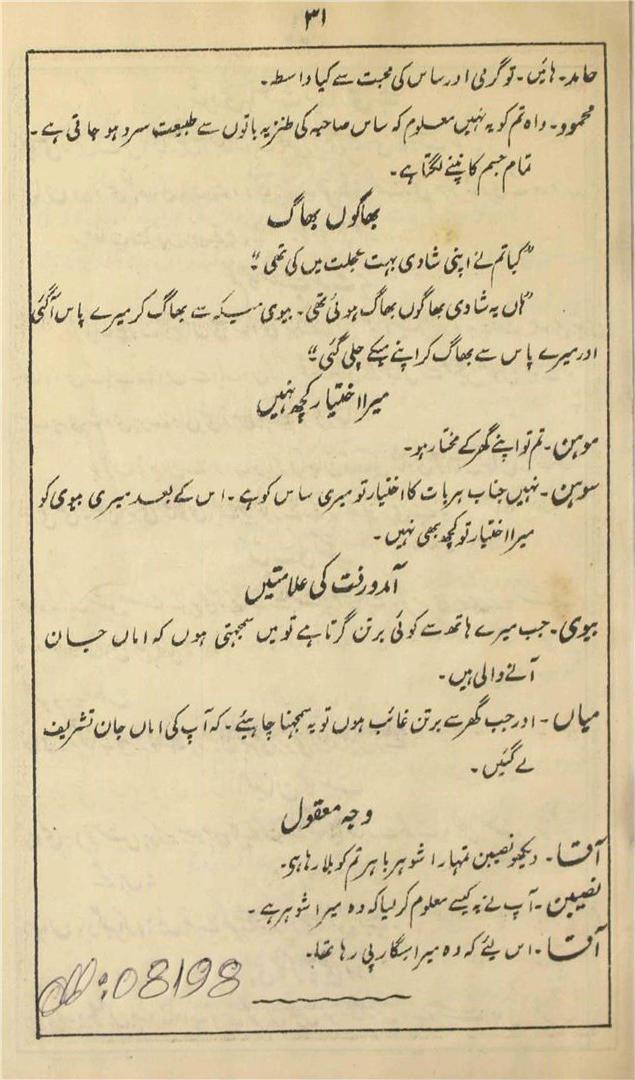 ۳۱
حامد۔ ہائیں۔ تو گرمی اور ساس کی محبت سے کیا واسطہ۔
محمود۔ واہ تم کو یہ نہیں معلوم کہ ساس صاحبہ کی طنزیہ باتوں سے طبیعت سرد ہو جاتی ہے۔
تمام جسم کانپنے لگتا ہے۔
بھاگوں بھاگ
"کیا تم نے اپنی شادی بہت عجلت میں کی تھی؟"
"ہاں یہ شادی بھاگوں بھاگ ہوئی تھی۔ بیوی میکہ سے بھاگ کر میرے پاس آگئی
اور میرے پاس سے بھاگ کر اپنے میکے چلی گئی"
میرا اختیار کچھ نہیں
موہن۔ تم تو اپنے گھر کے مختار ہو۔
سوہن۔ نہیں جناب ہر بات کا اختیار تو میری ساس کو ہے۔ اس کے بعد میری بیوی کو
میرا اختیار تو کچھ بھی نہیں۔
آمدورفت کی علامتیں
بیوی۔ جب میرے ہاتھ سے کوئی برتن گرتا ہے تو میں سمجھتی ہوں کہ اماں جان
آنے والی ہیں۔
میاں۔ اور جب گھر سے برتن غائب ہوں تو یہ سمجھنا چاہیئے۔ کہ آپ کی اماں جان تشریف
لے گئیں۔
وجہ معقول
آقا۔ دیکھو نصیبن تمہارا شوہر باہر تم کو بلا رہا ہے۔
نصیبن۔ آپ نے یہ کیسے معلوم کر لیا کہ وہ میرا شوہر ہے۔
آقا۔ اس لیئے کہ وہ میرا سگار پی رہا تھا۔
08198